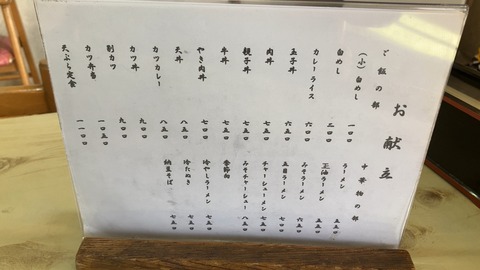 お献立
ご飯の部
(小)白めし 一〇〇
白めし 二〇〇
カレーライス 六五〇
玉子丼 六五〇
肉丼 七五〇
親子丼 七五〇
牛丼 七五〇
やき肉丼 七〇〇
天丼 八五〇
カツカレー 八五〇
カツ丼 九〇〇
別カツ 九〇〇
カツ弁当 一〇五〇
天ぷら定食 一一〇〇
中華物の部
ラーメン 五五〇
正油ラーメン 五五〇
みそラーメン 六五〇
五目ラーメン 七〇〇
チャーシューメン 七五〇
みそチャーシュー 八五〇
季節向
冷やしラーメン 七五〇
冷たぬき 七五〇
納豆そば 七五〇